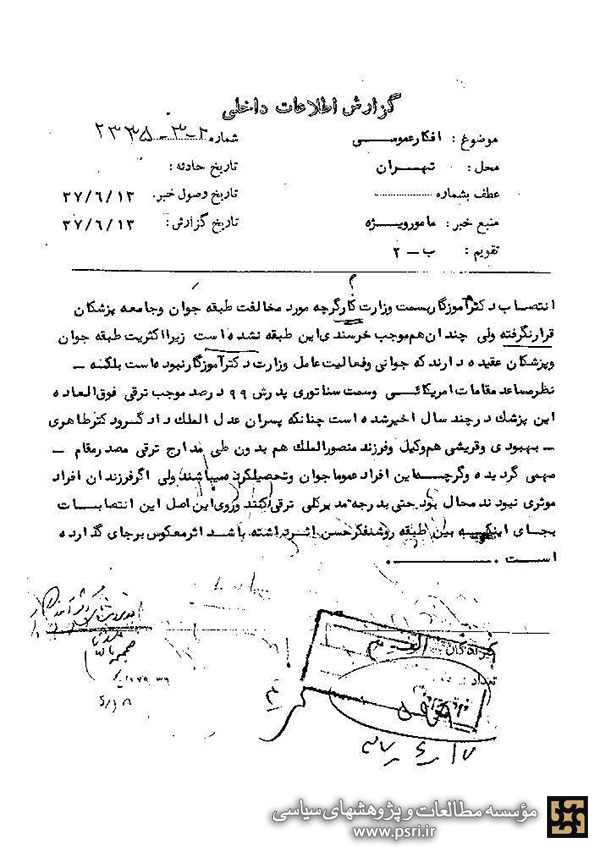 گزارش اطلاعات داخلی
موضوع : افکار عمومی
شماره ۲۳۳۵-۳-۲
محل : تهران
تاریخ حادثه :
عطف بشماره
تاریخ وصول خبر: ۳۷/۶/۱۳
منبع خبر : مامور ویژه
تاریخ گزارش : ۳۷/۶/۱۳
تقویم : ب - ۲
انتصاب دکتر آموزگار بسمت وزارت کار گرچه مورد مخالفت طبقه جوان و جامعه پزشکان
قرار نگرفته ولی چندان هم موجب خرسندی این طبقه نشده است زیرا اکثریت طبقه جوان
و پزشکان عقیده دارند که جوانی و فعالیت عامل وزارت دکتر آموزگار نبوده است بلکه -
نظر مساعد مقامات امریکائی وسمت سناتوری پدرش ۹۹ درصد موجب ترقی فوق العاده
این پزشک در چند سال اخیر شده است چنانکه پسران عدل الملک دادگر و دکتر طاهری
- بهبودی و قریشی هم وکیل و فرزند منصورالملک هم بدون طی مدارج ترقی مصدر مقام -
مهمی گردیده و گرچه این افراد عموما جوان و تحصیلکرده میباشند ولی اگر فرزندان افراد
موثری نبودند محال بود حتی بدرجه مدیر کلی ترقی کنند و روی این اصل این انتصابات
بجای اینکه بین طبقه روشنفکر حسن اثر داشته باشد اثر معکوس بر جای گذارده
است .
۳۷/۶/۱۷
مؤسسه مطالعات و پژوهشهای سیاسی
www.psri.ir